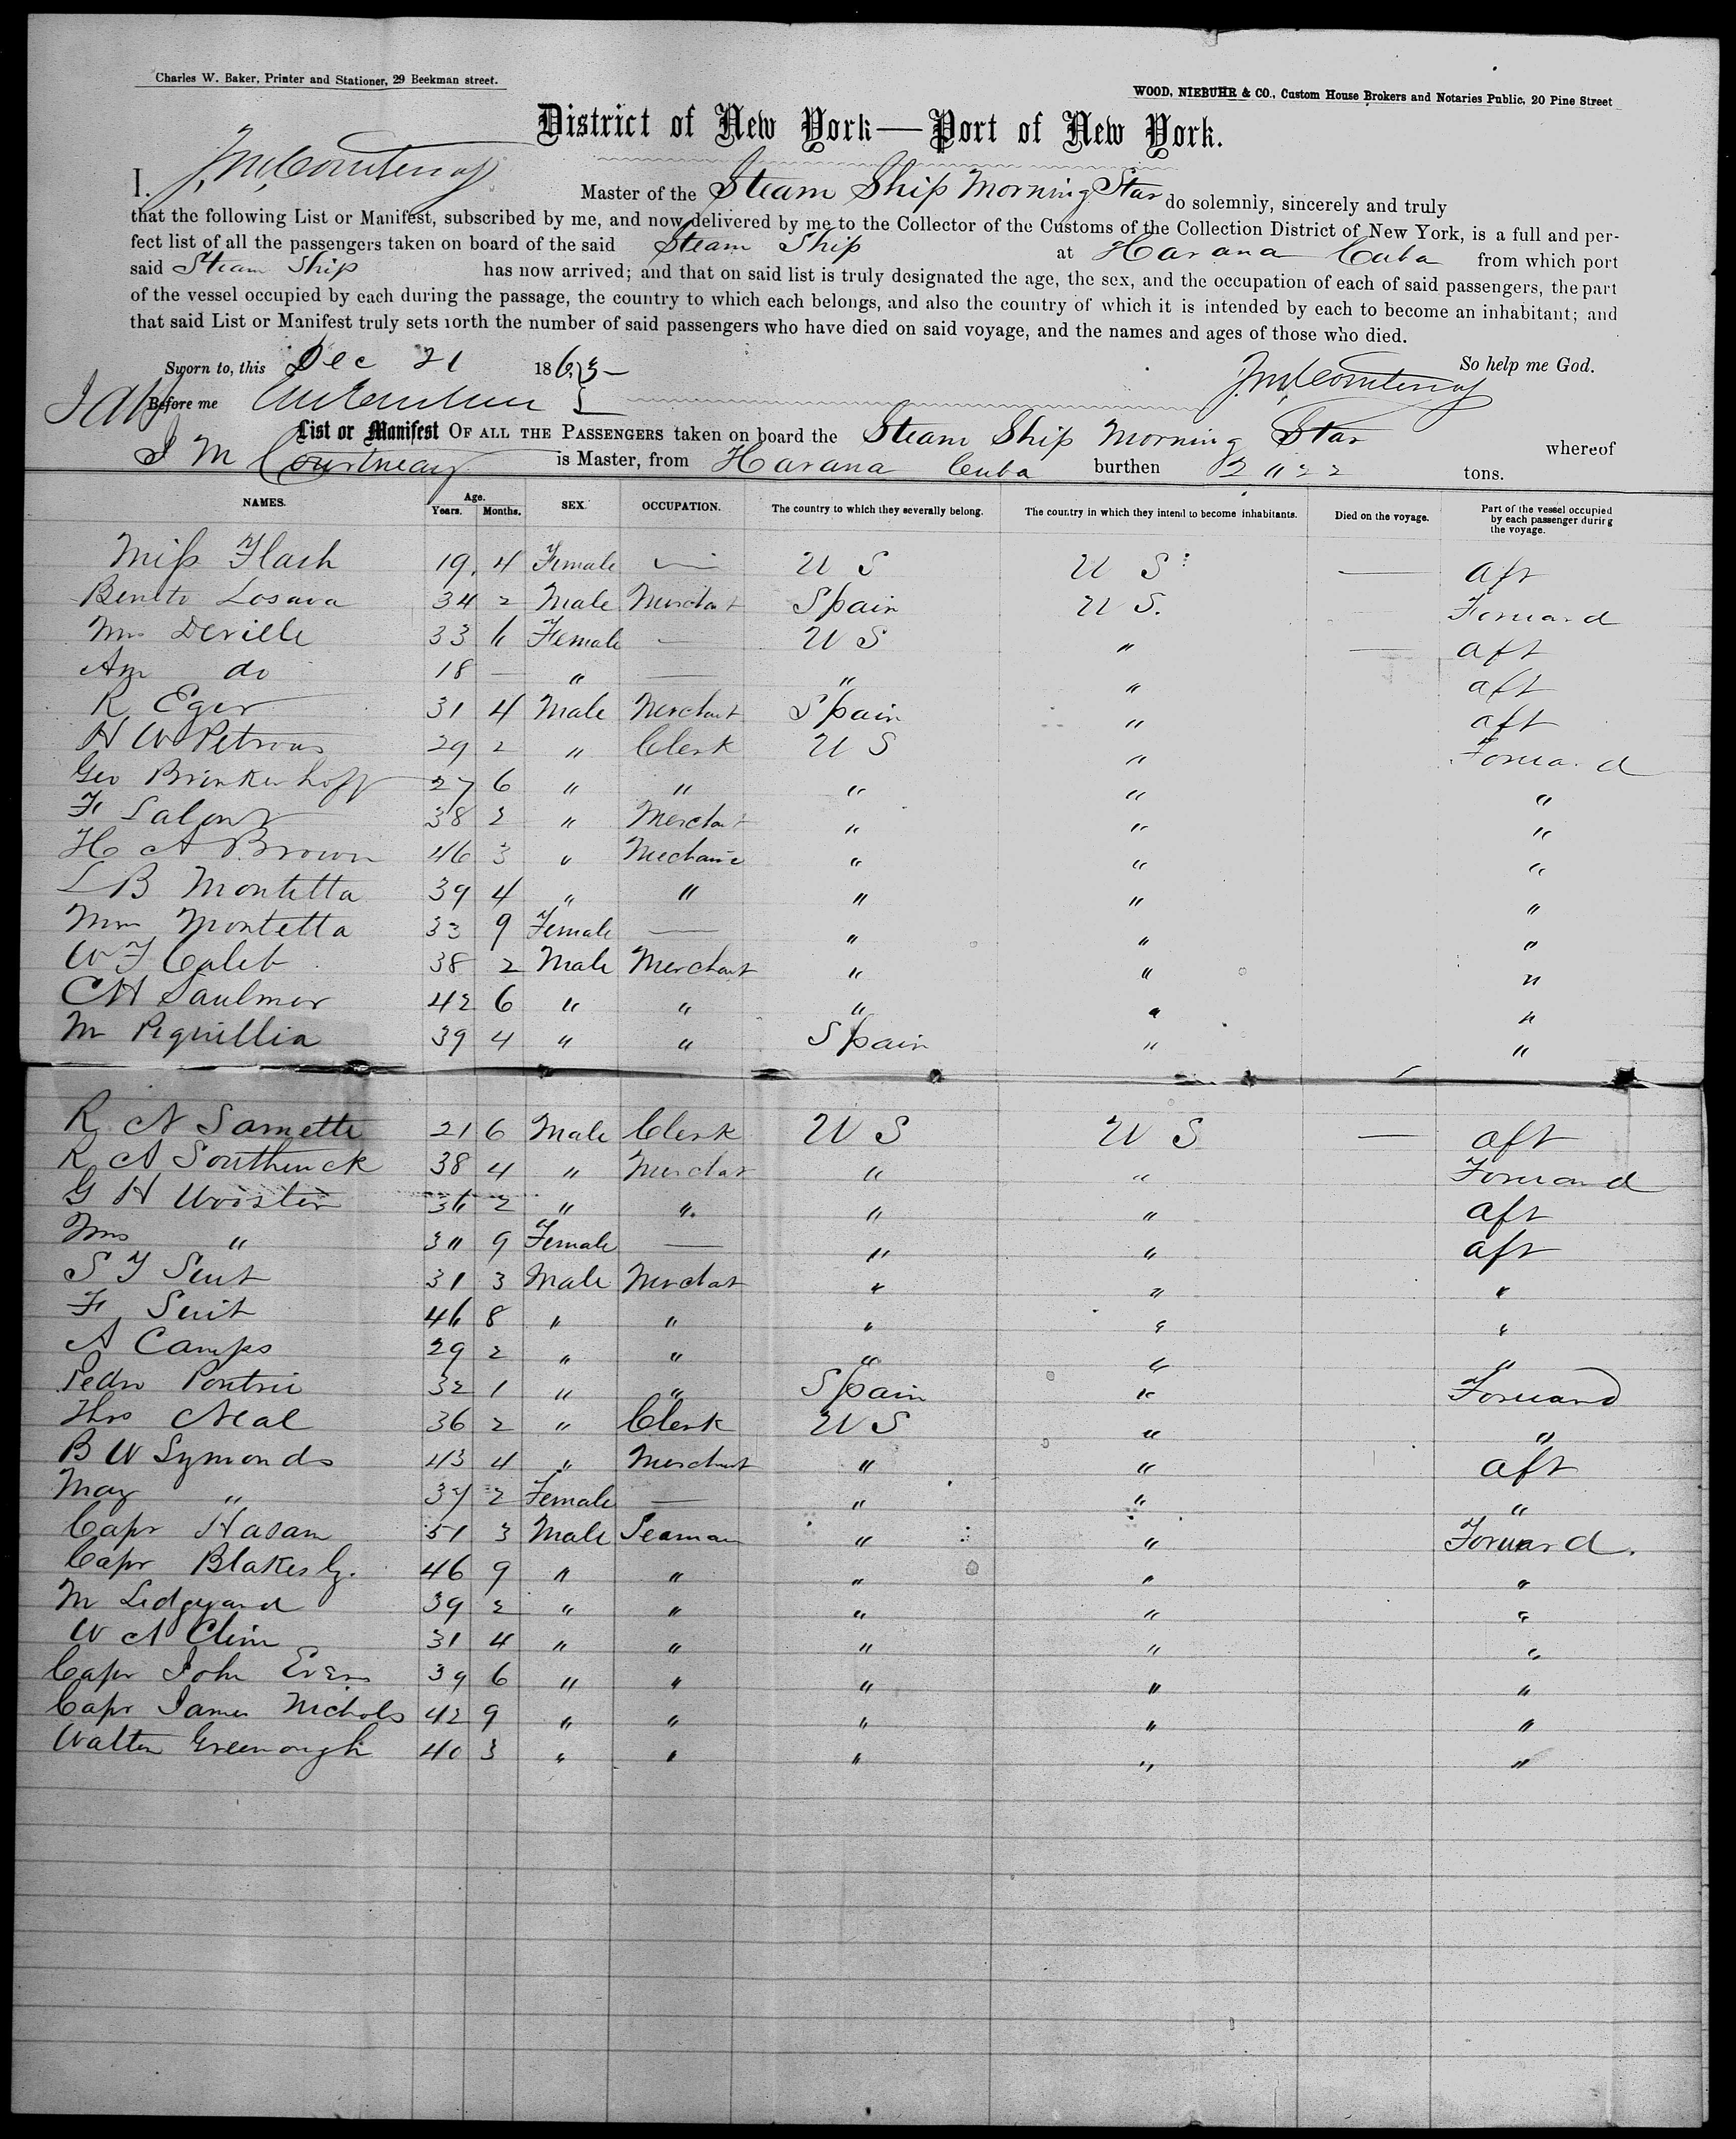 Charles W. Baker, Printer and Stationer, 29 Beekman street.
WOOD, NIEBUHR & CO., Custom House Brokers and Notaries Public, 20 Pine Street
District of New York—Port of New York.
I. J. M. Courtenay Master of the Steam Ship Morning Star do solemnly, sincerely and truly
that the following List or Manifest, subscribed by me, and now delivered by me to the Collector of the Customs of the Collection District of New York, is a full and per-
fect list of all the passengers taken on board of the said Steam Ship at Havana Cuba from which port
said Steam Ship has now arrived; and that on said list is truly designated the age, the sex, and the occupation of each of said passengers, the part
of the vessel occupied by each during the passage, the country to which each belongs, and also the country of which it is intended by each to become an inhabitant; and
that said List or Manifest truly sets forth the number of said passengers who have died on said voyage, and the names and ages of those who died.
Sworn to, this Dec 21 1863 So help me God.
Before me J. M. Courtenay
List or Manifest OF ALL THE PASSENGERS taken on board the Steam Ship Morning Star whereof
J M Courtneay is Master, from Havana Cuba burthen 2022 tons.
NAMES. Age. Years. Months. SEX. OCCUPATION. The country to which they severally belong. The country in which they intend to become inhabitants. Died on the voyage. Part of the vessel occupied by each passenger during the voyage.
Miss Flash 19. 4 Female — U S U S — aft
Benito Losava 34 2 Male Merchant Spain U S. Forward
Mrs Deville 33 6 Female — U S " — aft
Am do 18 — " — " " aft
R Eger 31 4 Male Merchant Spain " aft
H W Petrous 29 2 " Clerk U S " Forward
Geo Brinkerhoff 27 6 " " " " "
F Salom 38 2 " Merchant " " "
H A Brown 46 3 " Mechanic " " "
L B Montetta 39 4 " " " " "
Mrs Montetta 33 9 Female — " " "
W F Caleb 38 2 Male Merchant " " "
C H Saulmer 42 6 " " " " "
M Piquillia 39 4 " " Spain " "
R N Samette 21 6 Male Clerk U S U S — aft
R A Southwick 38 4 " Merchant " " Forward
G H Wooster 36 2 " " " " aft
Mrs " 30 9 Female — " " aft
S T Suit 31 3 Male Merchant " " "
F Suit 46 8 " " " " "
A Camps 29 2 " " " " "
Pedro Pontrie 32 1 " " Spain " Forward
Thos Neal 36 2 " Clerk U S " "
B W Symonds 43 4 " Merchant " " aft
May " 37 2 Female — " " "
Capt Hasam 51 3 Male Seaman " " Forward.
Capt Blakesly. 46 9 " " " " "
M Ledgward 39 2 " " " " "
W A Cline 31 4 " " " " "
Capt John Evens 39 6 " " " " "
Capt James Nichols 42 9 " " " " "
Walter Greenough 40 3 " " " " "